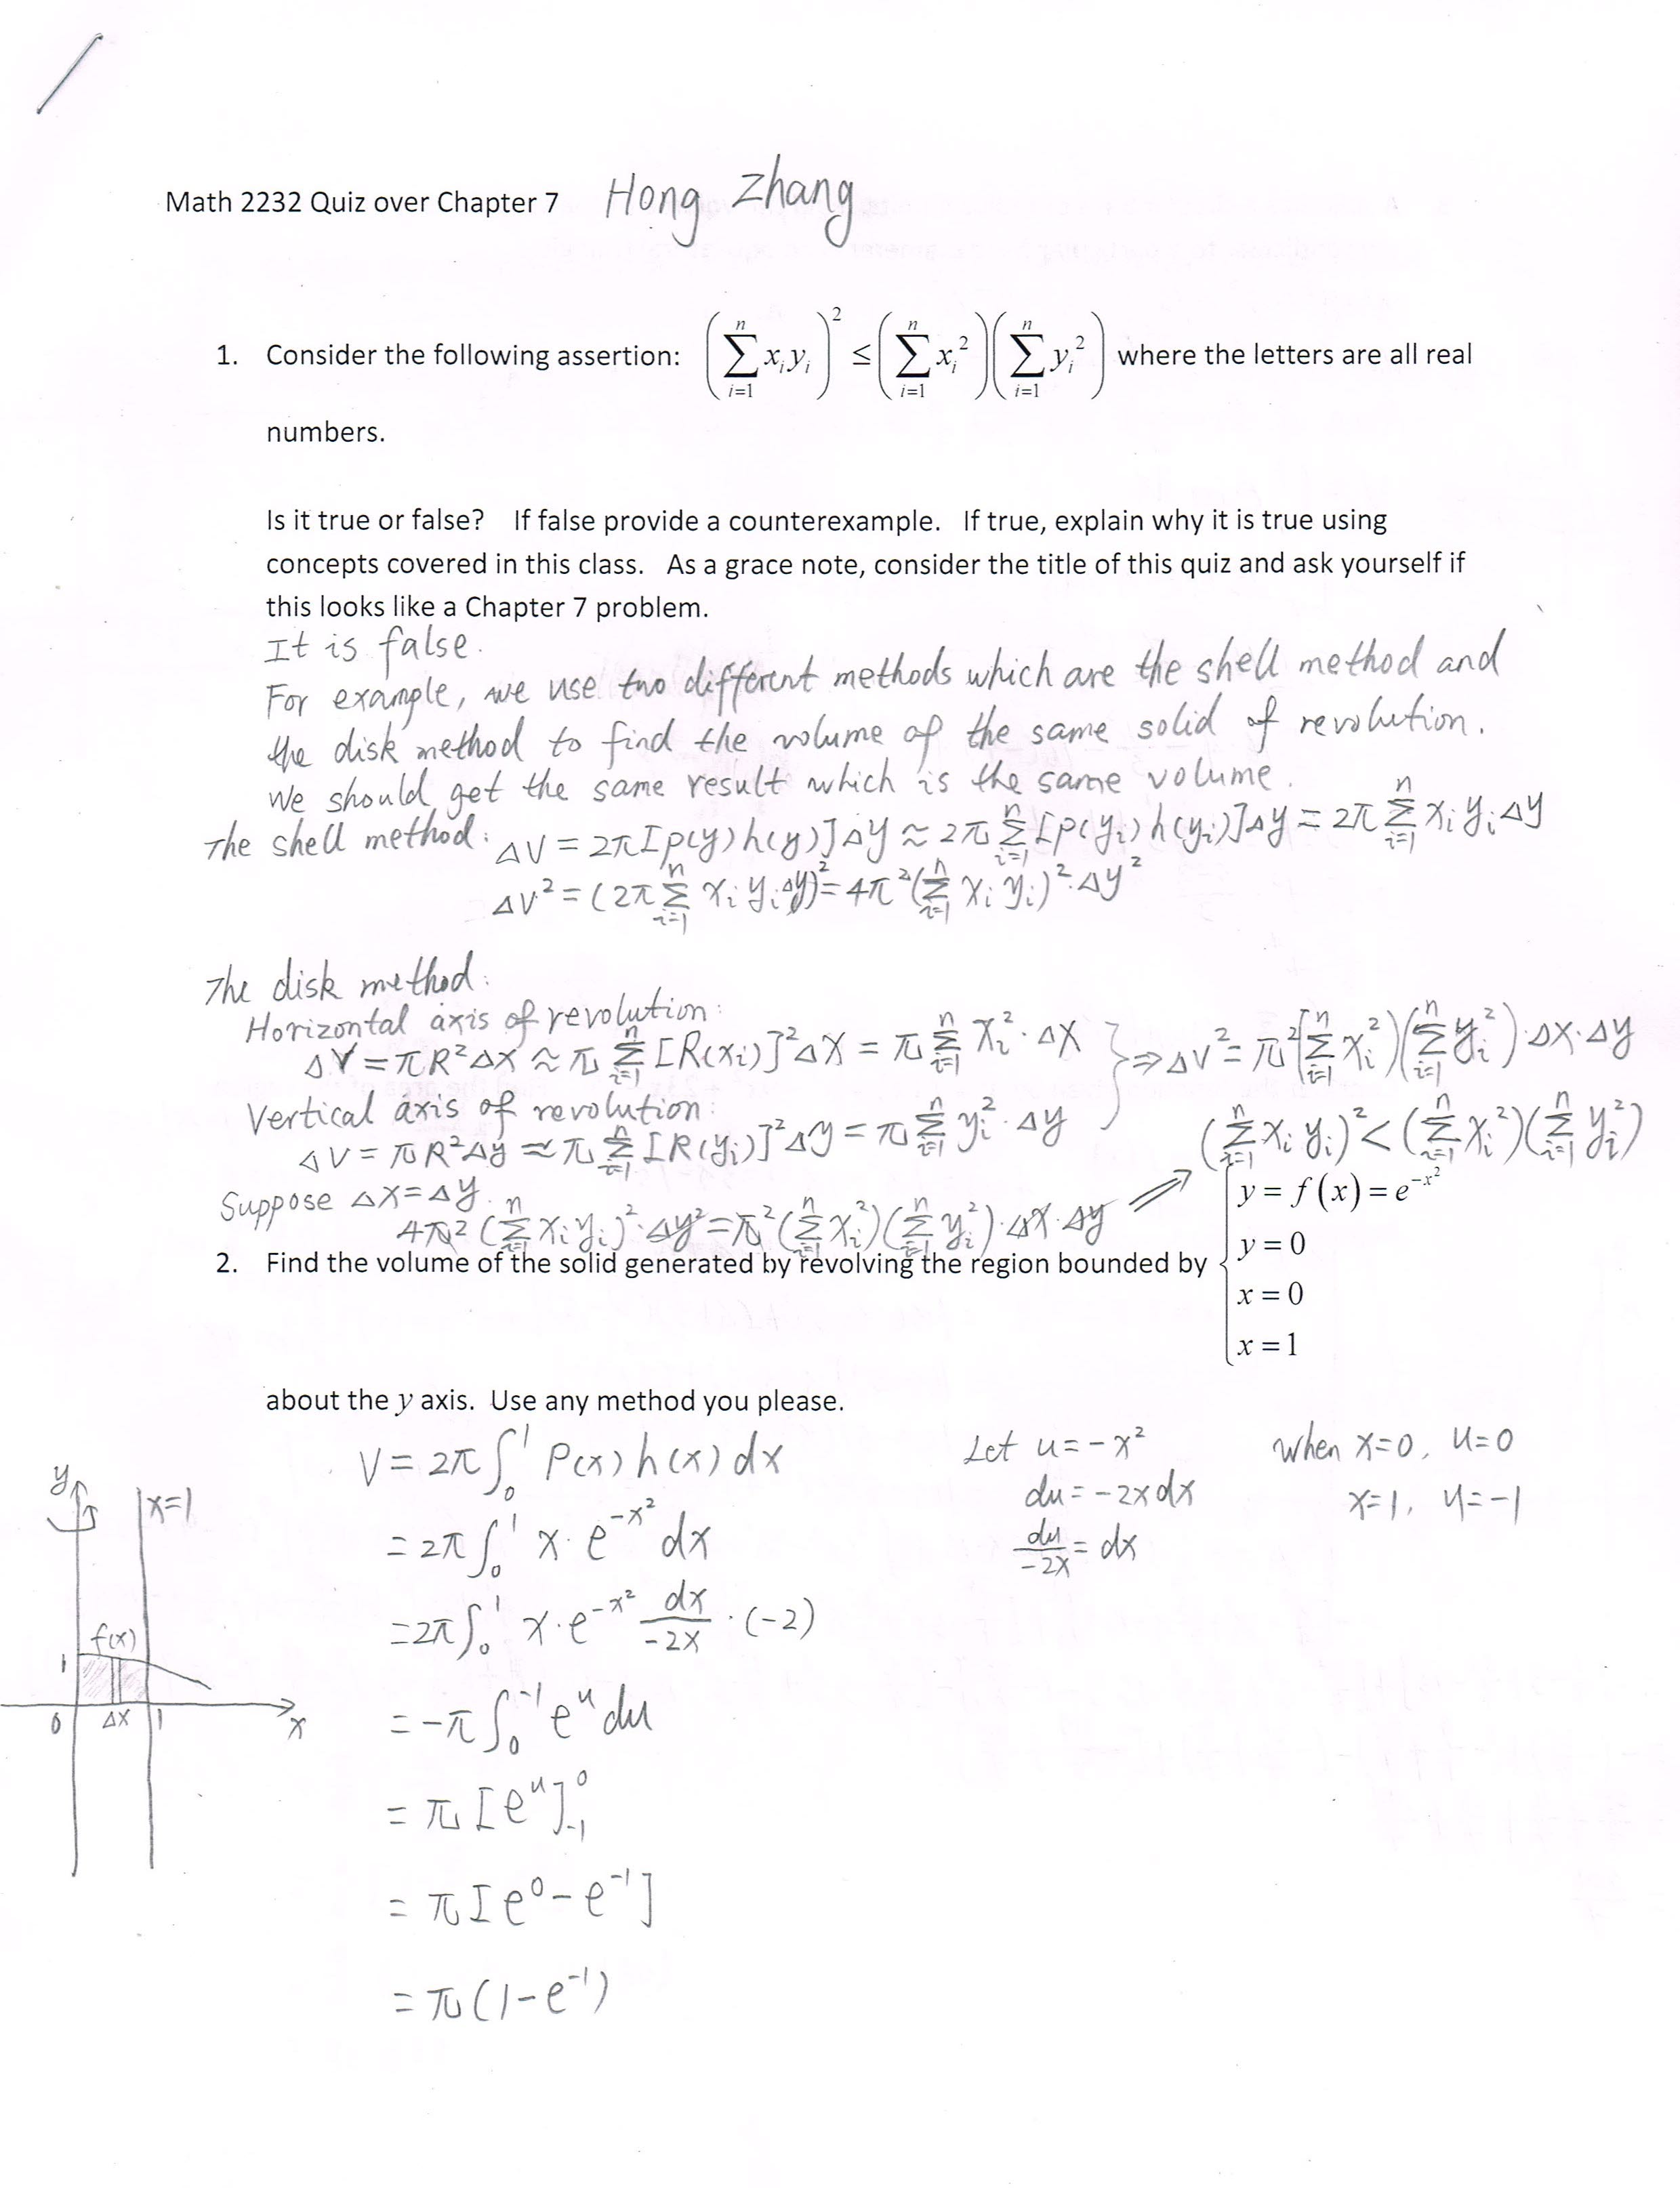 Math 2232 Quiz over Chapter 7 Hong Zhang
1. Consider the following assertion: (∑_{i=1}^{n} x_i y_i)² ≤ (∑_{i=1}^{n} x_i²)(∑_{i=1}^{n} y_i²) where the letters are all real
numbers.
Is it true or false? If false provide a counterexample. If true, explain why it is true using
concepts covered in this class. As a grace note, consider the title of this quiz and ask yourself if
this looks like a Chapter 7 problem.
It is false.
For example, we use two different methods which are the shell method and
the disk method to find the volume of the same solid of revolution.
We should get the same result which is the same volume.
The shell method: ΔV = 2π[p(y)h(y)]Δy ≈ 2π ∑_{i=1}^{n} [p(y_i)h(y_i)]Δy = 2π ∑_{i=1}^{n} x_i y_i Δy
ΔV² = (2π ∑_{i=1}^{n} x_i y_i Δy)² = 4π² (∑_{i=1}^{n} x_i y_i)² · Δy²
The disk method:
Horizontal axis of revolution:
ΔV = πR²Δx ≈ π ∑_{i=1}^{n} [R(x_i)]²Δx = π ∑_{i=1}^{n} x_i² · Δx
Vertical axis of revolution:
ΔV = πR²Δy ≈ π ∑_{i=1}^{n} [R(y_i)]²Δy = π ∑_{i=1}^{n} y_i² · Δy
} ⇒ ΔV² = π² (∑_{i=1}^{n} x_i²)(∑_{i=1}^{n} y_i²) · Δx · Δy
Suppose Δx = Δy.
4π² (∑_{i=1}^{n} x_i y_i)² · Δy² = π² (∑_{i=1}^{n} x_i²)(∑_{i=1}^{n} y_i²) · Δx · Δy ⇒ (∑_{i=1}^{n} x_i y_i)² < (∑_{i=1}^{n} x_i²)(∑_{i=1}^{n} y_i²)
2. Find the volume of the solid generated by revolving the region bounded by {
y = f(x) = e^{-x²}
y = 0
x = 0
x = 1
about the y axis. Use any method you please.
V = 2π ∫₀¹ P(x) h(x) dx
= 2π ∫₀¹ x · e^{-x²} dx
= 2π ∫₀¹ x · e^{-x²} dx/(-2x) · (-2)
= -π ∫₀^{-1} e^u du
= π [e^u]_{-1}^{0}
= π [e⁰ - e^{-1}]
= π (1 - e^{-1})
Let u = -x²
du = -2x dx
du/(-2x) = dx
when x=0, u=0
x=1, u=-1
y
x=1
f(x)
1
0 Δx 1 x